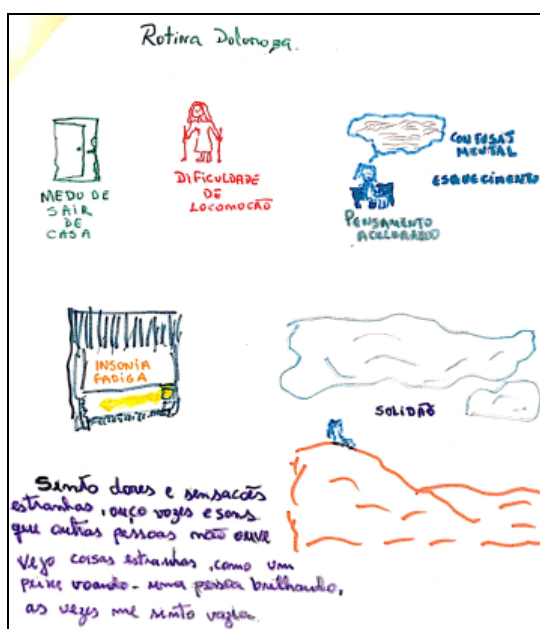 Rotina Dolorosa.
MEDO DE
SAIR
DE
CASA
DIFICULDADE
DE
LOCOMOCÃO
CONFUSAÕ
MENTAL
ESQUECIMENTO
PENSAMENTO
ACELERADO
INSONIA
FADIGA
SOLIDÃO
Sinto dores e sensacões
estranhas, ouço vozes e sons
que outras pessoas não ouve
vejo coisas estranhas, como um
peixe voando - uma pessoa brilhando,
as vezes me sinto vazia.